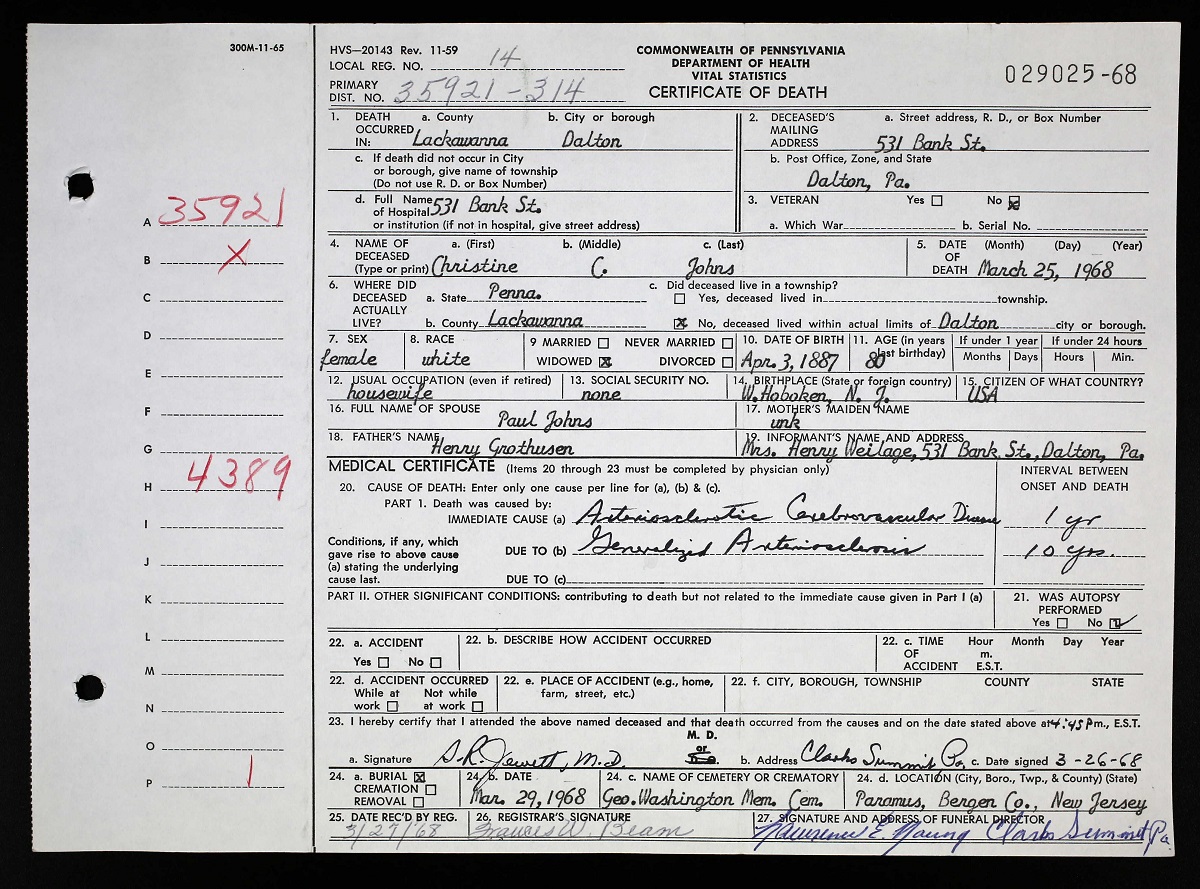 300M-11-65
HVS—20143 Rev. 11-59
LOCAL REG. NO. 14
PRIMARY
DIST. NO. 35921-314
COMMONWEALTH OF PENNSYLVANIA
DEPARTMENT OF HEALTH
VITAL STATISTICS
CERTIFICATE OF DEATH
029025-68
1. DEATH OCCURRED IN: a. County b. City or borough
Lackawanna Dalton
c. If death did not occur in City
or borough, give name of township
(Do not use R. D. or Box Number)
d. Full Name of Hospital 531 Bank St.
or institution (if not in hospital, give street address)
2. DECEASED'S MAILING ADDRESS a. Street address, R. D., or Box Number
531 Bank St.
b. Post Office, Zone, and State
Dalton, Pa.
3. VETERAN Yes No
a. Which War b. Serial No.
4. NAME OF DECEASED (Type or print) a. (First) b. (Middle) c. (Last)
Christine C. Johns
5. DATE OF DEATH (Month) (Day) (Year)
March 25, 1968
6. WHERE DID DECEASED ACTUALLY LIVE?
a. State Penna.
b. County Lackawanna
c. Did deceased live in a township?
Yes, deceased lived in township.
No, deceased lived within actual limits of Dalton city or borough.
7. SEX
female
8. RACE
white
9 MARRIED NEVER MARRIED
WIDOWED DIVORCED
10. DATE OF BIRTH
Apr. 3, 1887
11. AGE (in years last birthday)
80
If under 1 year
Months Days
If under 24 hours
Hours Min.
12. USUAL OCCUPATION (even if retired)
housewife
13. SOCIAL SECURITY NO.
none
14. BIRTHPLACE (State or foreign country)
W. Hoboken, N. J.
15. CITIZEN OF WHAT COUNTRY?
USA
16. FULL NAME OF SPOUSE
Paul Johns
17. MOTHER'S MAIDEN NAME
unk
18. FATHER'S NAME
Henry Grothusen
19. INFORMANT'S NAME AND ADDRESS
Mrs. Henry Weilage, 531 Bank St., Dalton, Pa.
MEDICAL CERTIFICATE (Items 20 through 23 must be completed by physician only)
INTERVAL BETWEEN
ONSET AND DEATH
20. CAUSE OF DEATH: Enter only one cause per line for (a), (b) & (c).
PART 1. Death was caused by:
IMMEDIATE CAUSE (a) Arteriosclerotic Cerebrovascular Disease 1 yr
Conditions, if any, which
gave rise to above cause
(a) stating the underlying
cause last.
DUE TO (b) Generalized Arteriosclerosis 10 yrs.
DUE TO (c)
PART II. OTHER SIGNIFICANT CONDITIONS: contributing to death but not related to the immediate cause given in Part I (a)
21. WAS AUTOPSY
PERFORMED
Yes No
22. a. ACCIDENT
Yes No
22. b. DESCRIBE HOW ACCIDENT OCCURRED
22. c. TIME OF ACCIDENT Hour Month Day Year
m.
E.S.T.
22. d. ACCIDENT OCCURRED
While at work Not while at work
22. e. PLACE OF ACCIDENT (e.g., home,
farm, street, etc.)
22. f. CITY, BOROUGH, TOWNSHIP COUNTY STATE
23. I hereby certify that I attended the above named deceased and that death occurred from the causes and on the date stated above at 4:45 P m., E.S.T.
a. Signature S.R. Jewett, M.D. M. D. or b. Address Clarks Summit Pa. c. Date signed 3-26-68
24. a. BURIAL
CREMATION
REMOVAL
24. b. DATE
Mar. 29, 1968
24. c. NAME OF CEMETERY OR CREMATORY
Geo. Washington Mem. Cem.
24. d. LOCATION (City, Boro., Twp., & County) (State)
Paramus, Bergen Co., New Jersey
25. DATE REC'D BY REG.
3/27/68
26. REGISTRAR'S SIGNATURE
Frances W. Beam
27. SIGNATURE AND ADDRESS OF FUNERAL DIRECTOR
Lawrence E. Young Clarks Summit, Pa.
A 35921
B X
C
D
E
F
G
H 4389
I
J
K
L
M
N
O
P 1